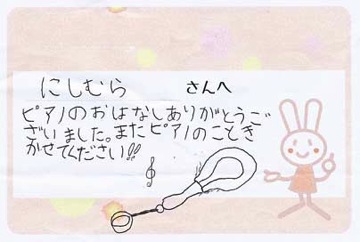 にしむら さんへ
ピアノのおはなしありがとうご
ざいました。またピアノのことき
かせてください!!